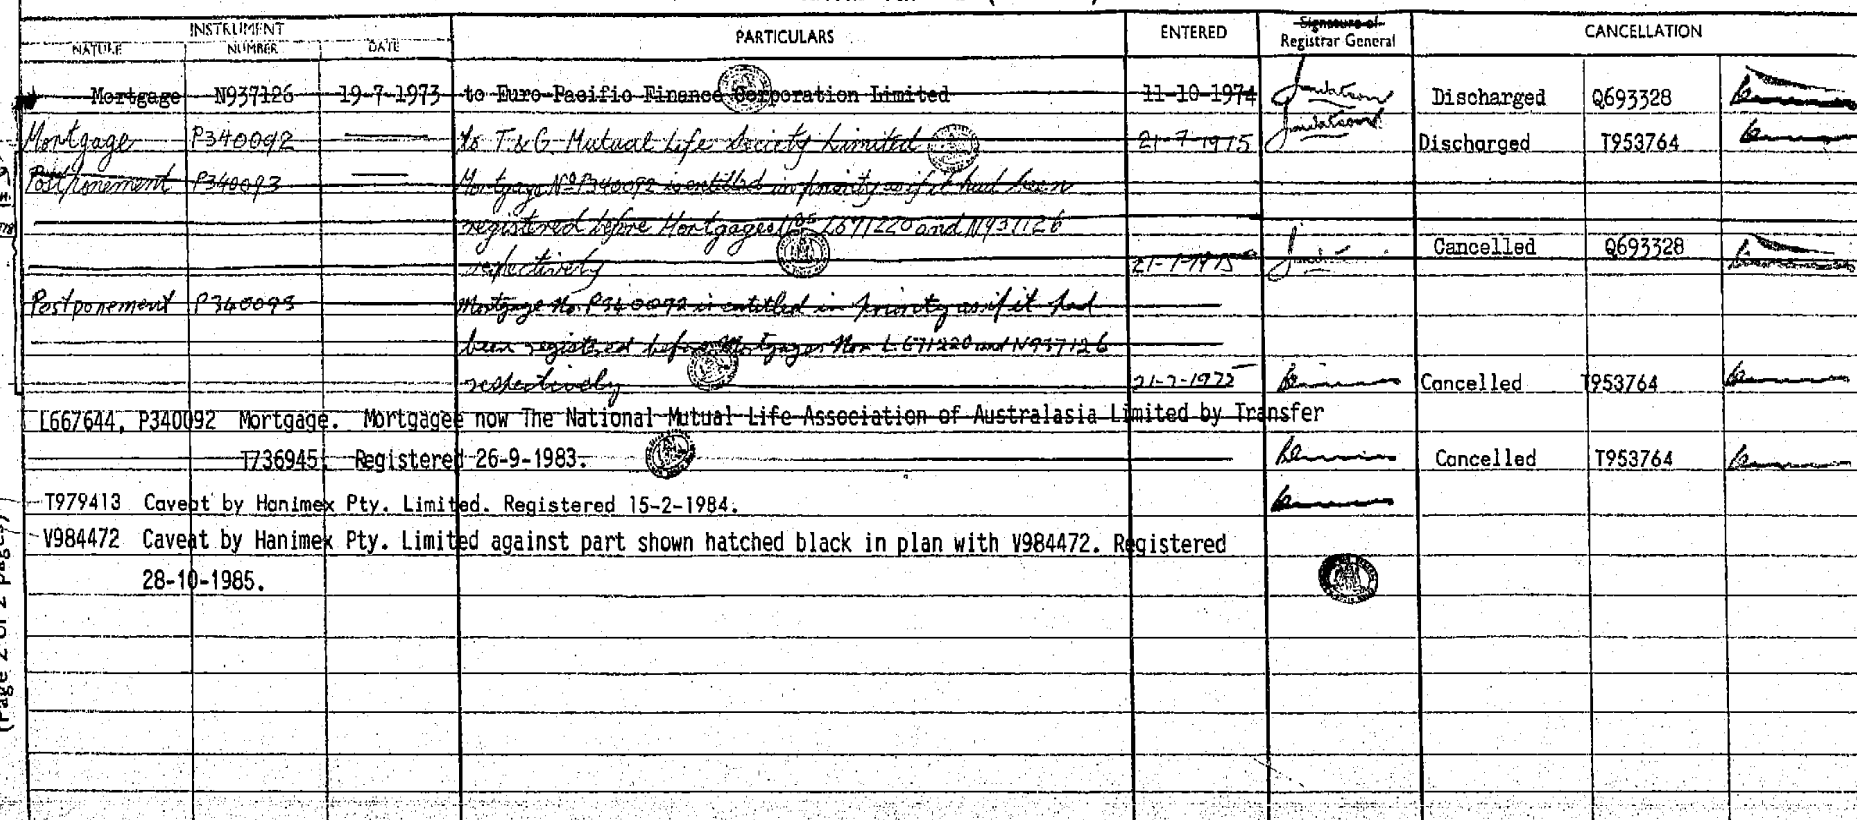 INSTRUMENT
NATURE NUMBER DATE PARTICULARS ENTERED Signature of Registrar General CANCELLATION
Mortgage N937126 19-7-1973 to Euro-Pacific Finance Corporation Limited 11-10-1974 Discharged Q693328
Mortgage P340092 to T. & G. Mutual Life Society Limited 21-7-1975 Discharged T953764
Postponement P340093 Mortgage No P340092 is entitled in priority as if it had been
registered before Mortgages Nos L671220 and N937126
respectively 21-7-1975 Cancelled Q693328
Postponement P340093 Mortgage No. P340092 is entitled in priority as if it had
been registered before Mortgages Nos L671220 and N937126
respectively 21-7-1975 Cancelled T953764
L667644, P340092 Mortgage. Mortgagee now The National Mutual Life Association of Australasia Limited by Transfer
T736945. Registered 26-9-1983. Cancelled T953764
T979413 Caveat by Hanimex Pty. Limited. Registered 15-2-1984.
V984472 Caveat by Hanimex Pty. Limited against part shown hatched black in plan with V984472. Registered
28-10-1985.
(Page 2 of 2 pages)